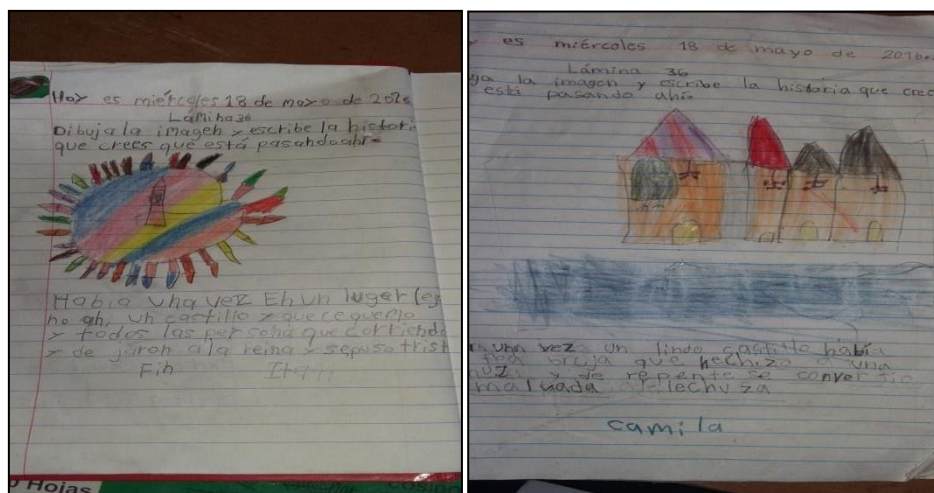 Hoy es miércoles 18 de mayo de 2016
Lámina 36
Dibuja la imagen y escribe la histori
que crees que está pasando ahí
Había una vez En un lugar lej
no ah, un castillo y que ce quemo
y todos las persona que corriendo
y de jaron a la reina y se puso trist
Fin
Hojas
es miércoles 18 de mayo de 2016
Lámina 36
ja la imagen y escribe la historia que cree
está pasando ahí
una vez un lindo castillo había
fea bruja que hechizo a una
huza y de repente se convertio
malvada lechuza
camila